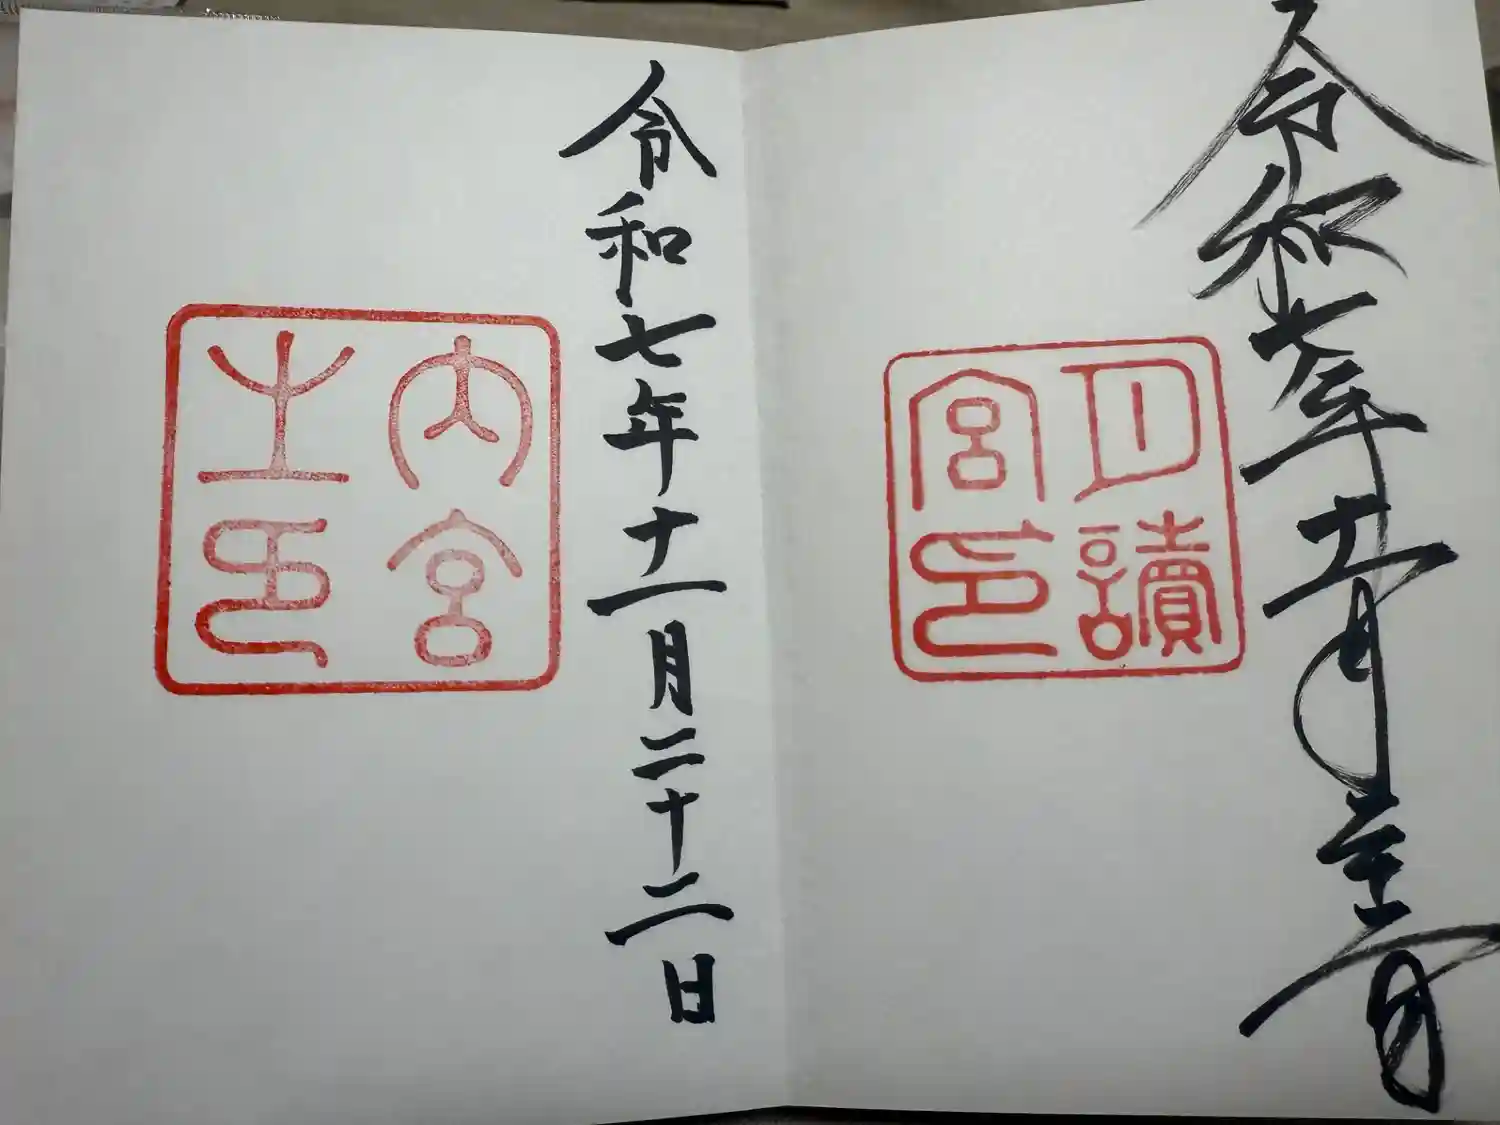 令和七年十一月二十二日
月讀
宮印
令和七年十一月二十二日
内宮
之印